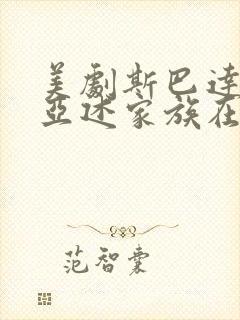 美劇斯巴達
亞述家族在
范智囊